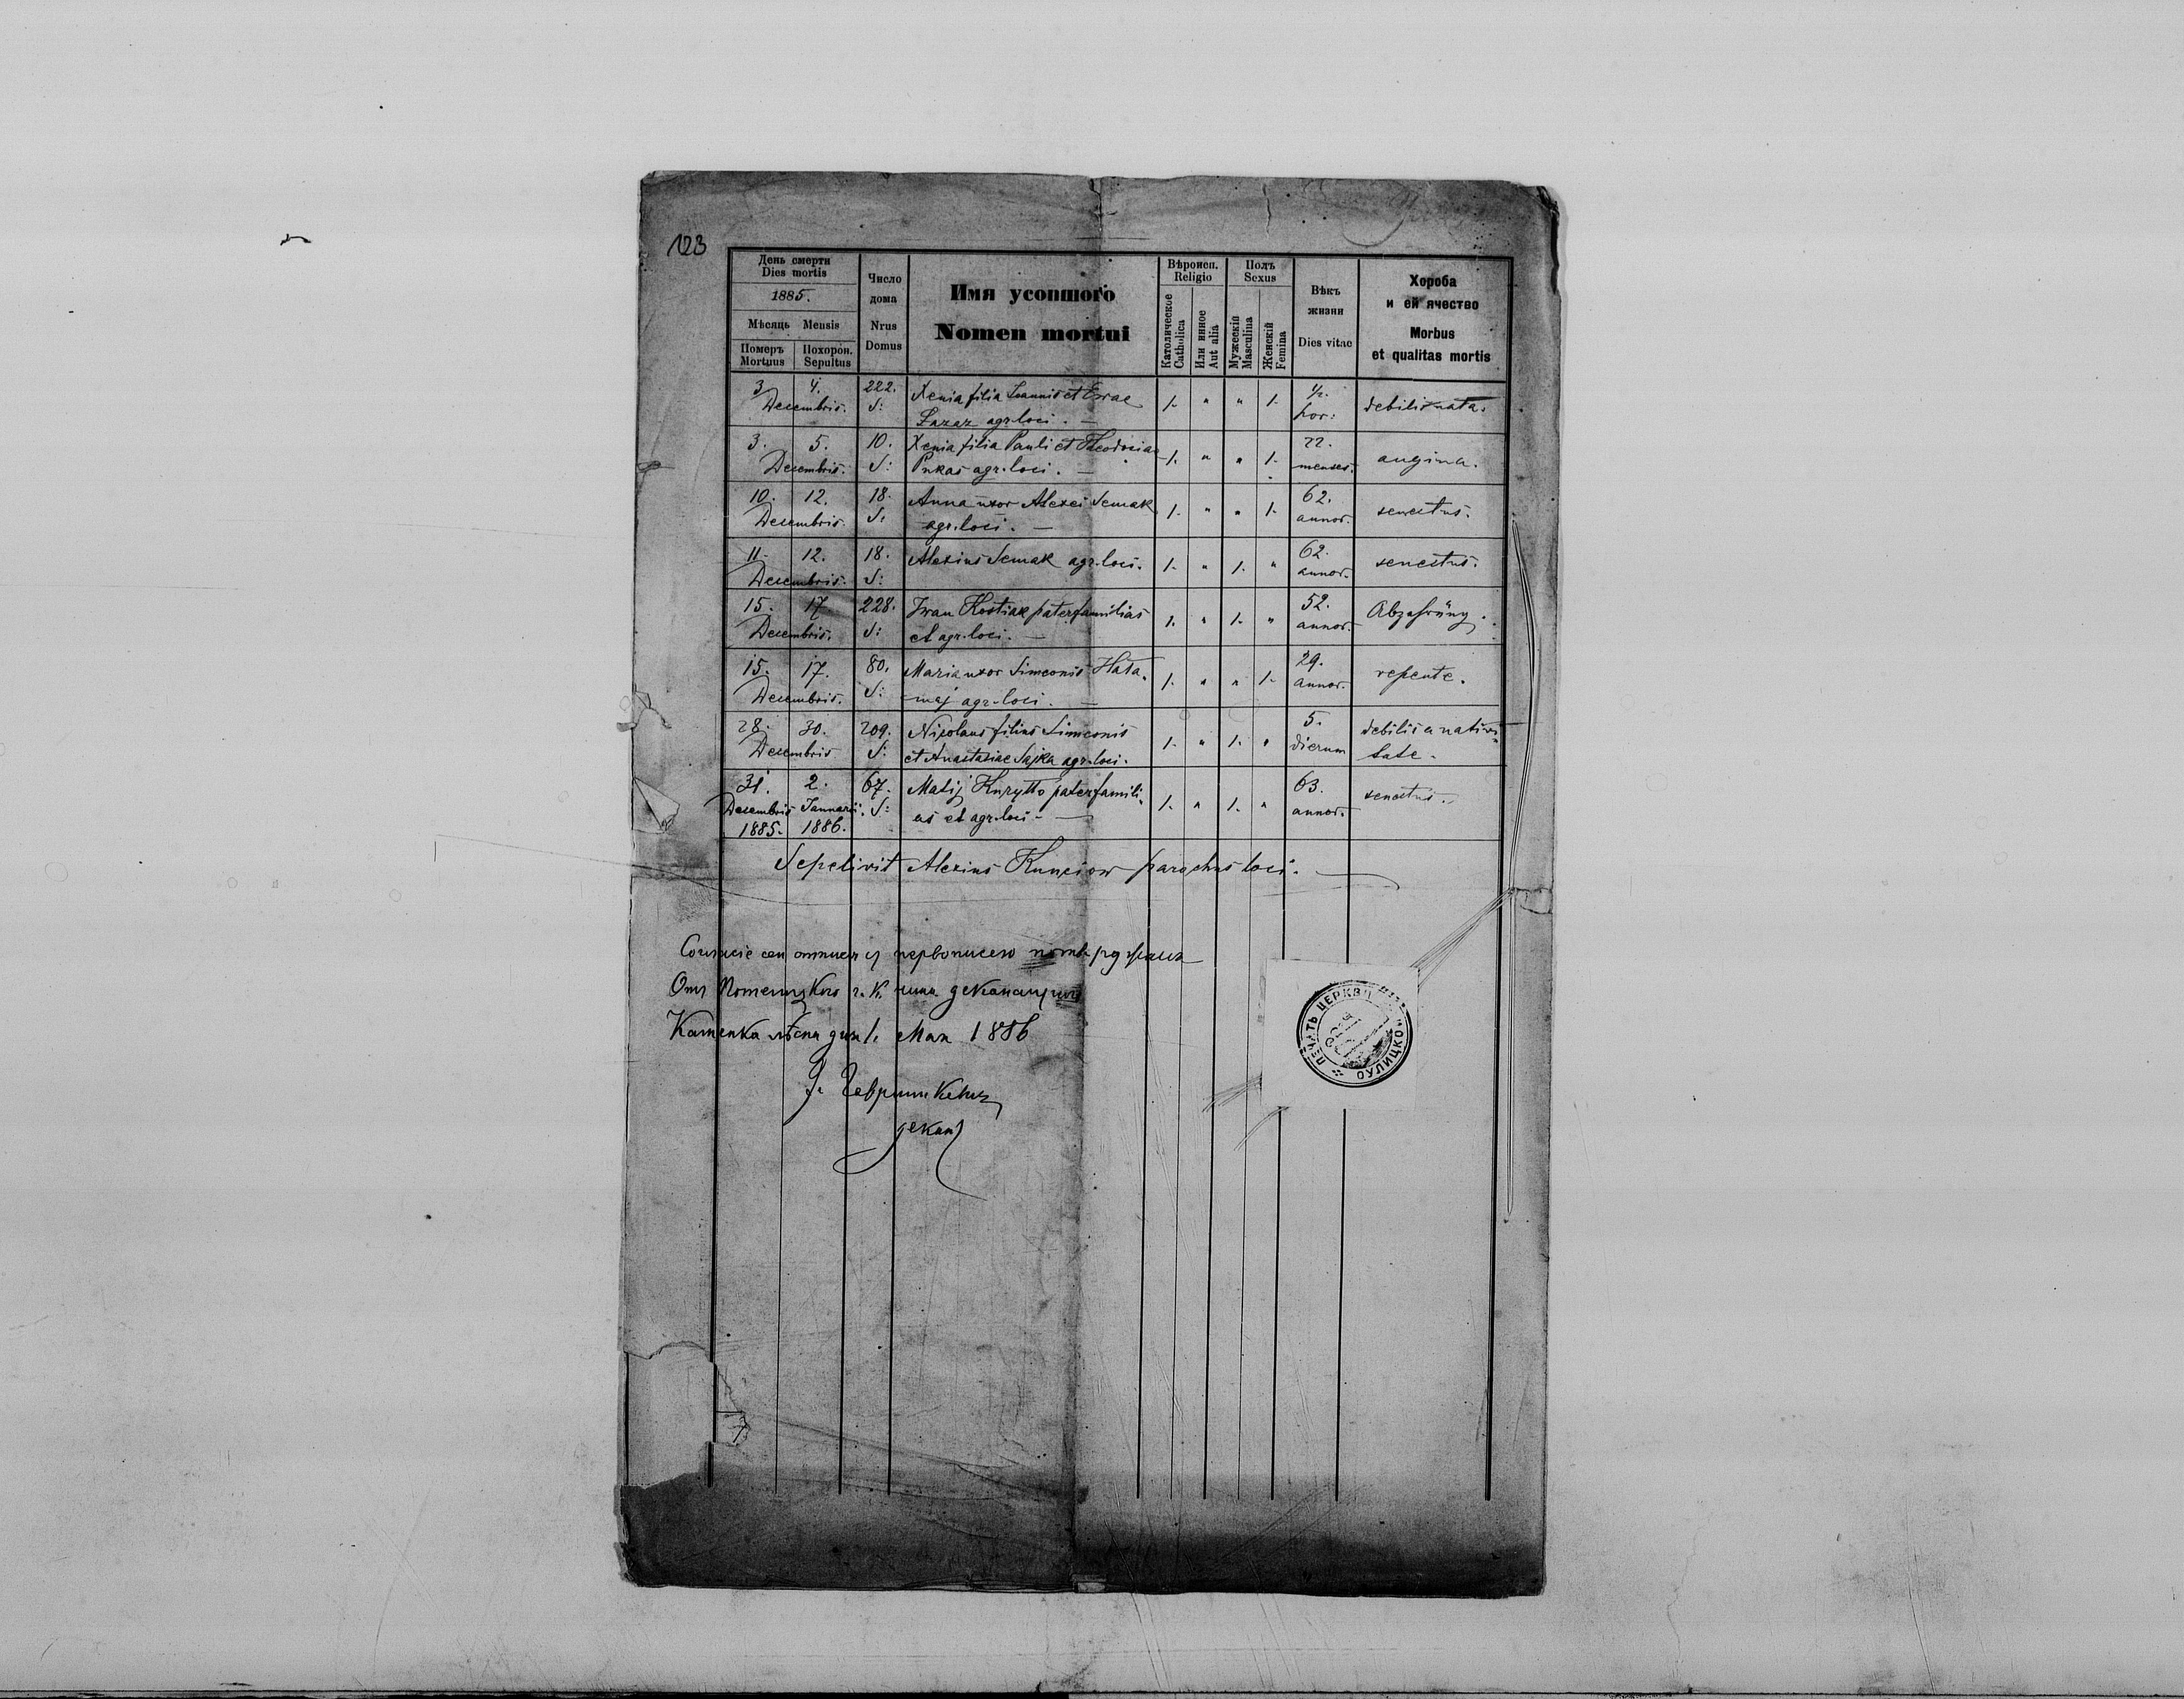 123
День смерти
Dies mortis
1885.
Мѣсяць Mensis
Померъ Mortuus
Похорон. Sepultus
Число дома
Nrus Domus
Имя усопшого
Nomen mortui
Вѣроисп.
Religio
Католическое Catholica
Или инное Aut alia
Полъ
Sexus
Мужескій Masculina
Женскій Femina
Вѣкъ жизни
Dies vitae
Хороба
и ей ячество
Morbus
et qualitas mortis
3 4. 222. Xenia filia Joannis et Ewae 1. " " 1. 1/2.
Decembris. S: Lazar agr. loci. — hor: debilis nata.
3. 5. 10. Xenia filia Pauli et Theodosiae 1. " " 1. 22.
Decembris. S: Pukas agr. loci. — menses. angina.
10. 12. 18. Anna uxor Alexei Semak 1. " " 1. 62.
Decembris. S. agr. loci. — annor. senectus.
11. 12. 18. Alexius Semak agr. loci. 1. " 1. " 62.
Decembris. S: annor. senectus.
15. 17. 228. Iwan Kostiak paterfamilias 1. " 1. " 52.
Decembris. S: et agr. loci. — annor. Abzehrung.
15. 17. 80. Maria uxor Simeonis Hata- 1. " " 1. 29.
Decembris. S: maj agr. loci. — annor. repente.
28. 30. 209. Nicolaus filius Simeonis 1. " 1. " 5. debilis a nativi-
Decembris S: et Anastasiae Sajka agr. loci. dierum tate.
31. 2. 67. Matij Kuryłło paterfamili- 1. " 1. " 63.
Decembris Januarii. S: as et agr. loci — annor. senectus.
1885. 1886.
Sepelivit Alexius Kunciow parochus loci. —
сей отписи съ первописею
Отъ г. к. деканального
Каменка лѣсна дня 1. Мая 1886
деканъ
ПЕЧАТЬ ЦЕРКВИ